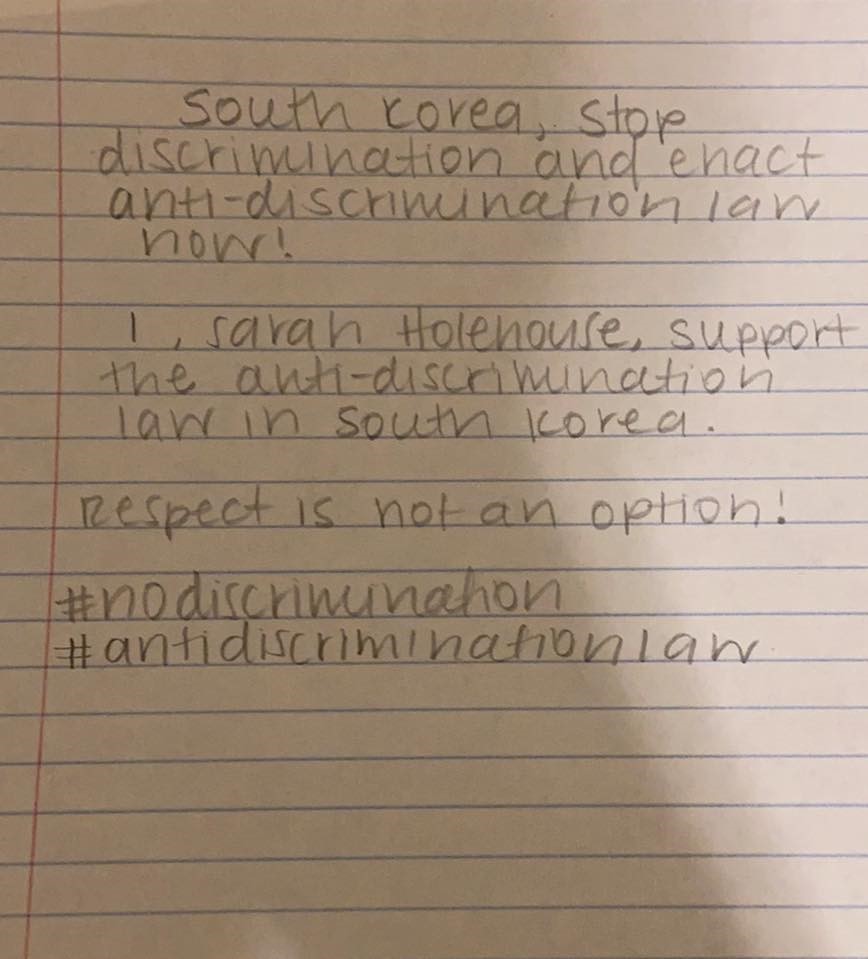 South Korea, stop
discrimination and enact
anti-discrimination law
now!
I, Sarah Holehouse, support
the anti-discrimination
law in South Korea.
Respect is not an option!
#nodiscrimination
#antidiscriminationlaw